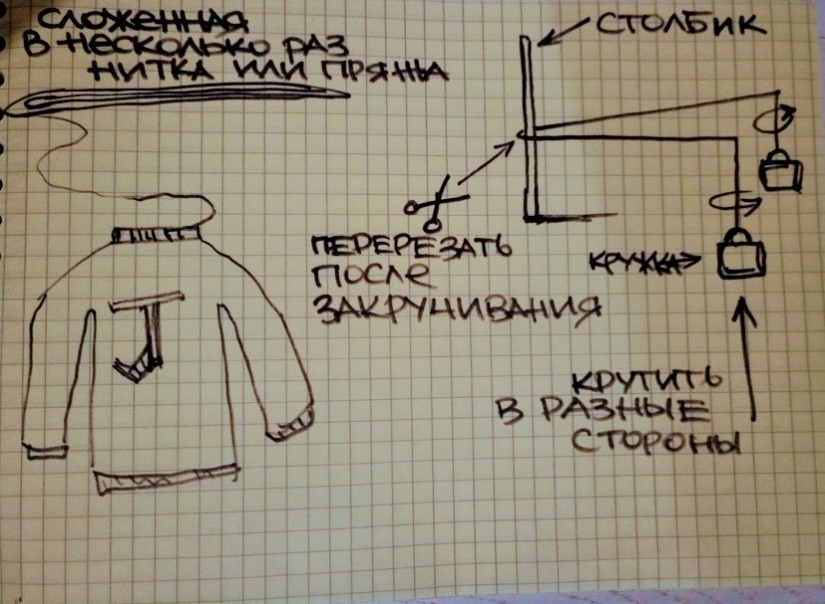 СЛОЖЕННАЯ
В НЕСКОЛЬКО РАЗ
НИТКА ИЛИ ПРЯЖА
СТОЛБИК
ПЕРЕРЕЗАТЬ
ПОСЛЕ
ЗАКРУЧИВАНИЯ
КРУЖКА
КРУТИТЬ
В РАЗНЫЕ
СТОРОНЫ